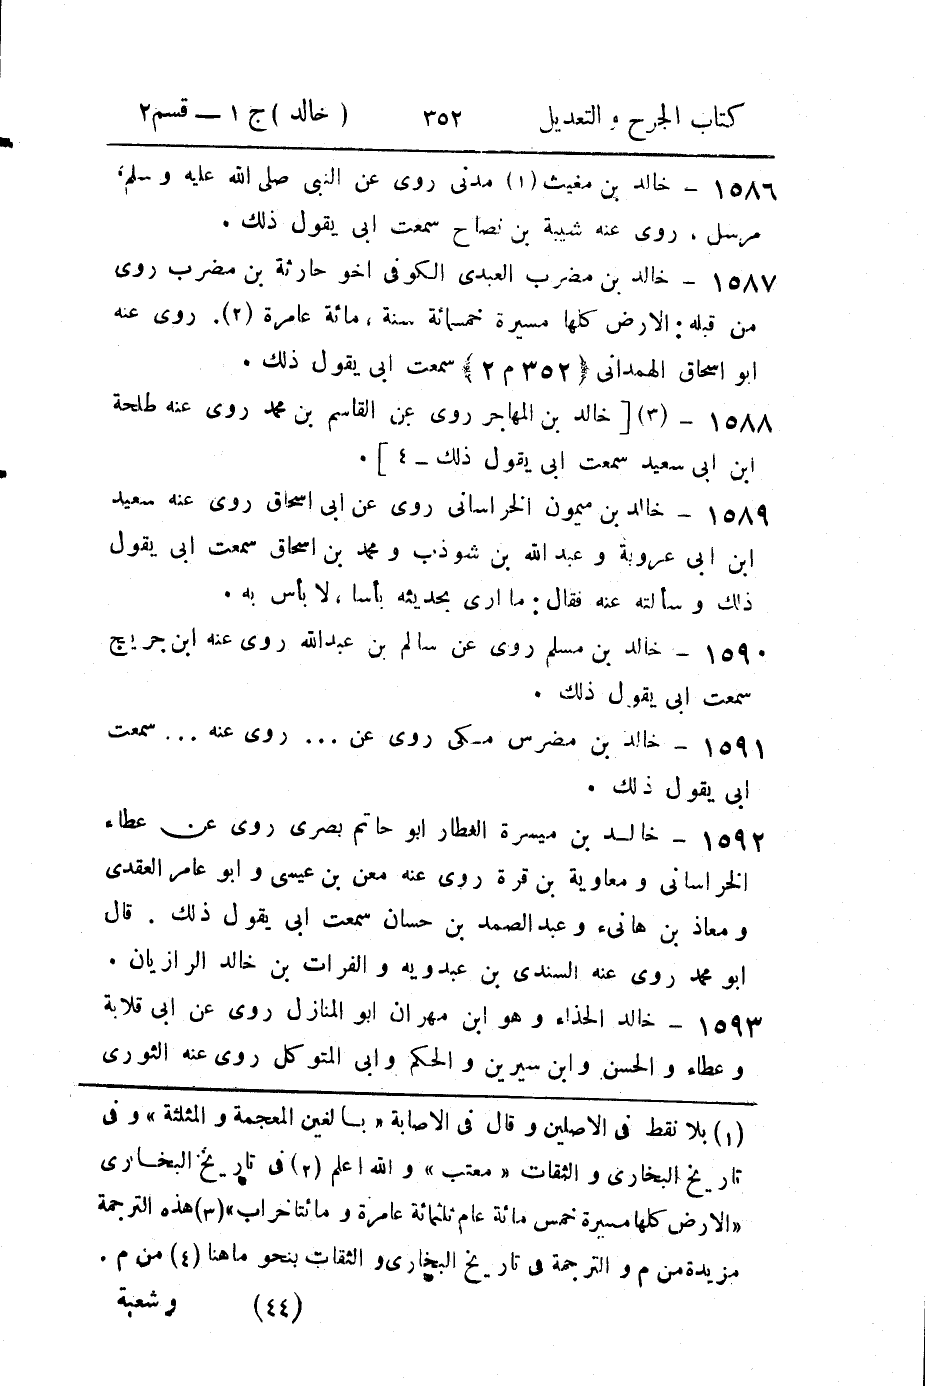 كتاب الجرح و التعديل ٣٥٢ ( خالد ) ج ١ – قسم ٢
١٥٨٦ – خالد بن مغيث (١) مدنى روى عن النبى صلى الله عليه و سلم،
مرسل ، روى عنه شيبة بن نصاح سمعت ابى يقول ذلك ٠
١٥٨٧ – خالد بن مضرب العبدى الكوفى اخو حارثة بن مضرب روى
من قبله : الارض كلها مسيرة خمسمائة سنة ، مائة عامرة (٢). روى عنه
ابو اسحاق الهمدانى { ٣٥٢ م ٢ } سمعت ابى يقول ذلك ٠
١٥٨٨ – (٣) [ خالد بن المهاجر روى عن القاسم بن محمد روى عنه طلحة
ابن ابى سعيد سمعت ابى يقول ذلك – ٤ ] ٠
١٥٨٩ – خالد بن ميمون الخراسانى روى عن ابى اسحاق روى عنه سعيد
ابن ابى عروبة و عبد الله بن شوذب و محمد بن اسحاق سمعت ابى يقول
ذلك و سألته عنه فقال : ما ارى بحديثه بأسا ، لا بأس به ٠
١٥٩٠ – خالد بن مسلم روى عن سالم بن عبدالله روى عنه ابن جريج
سمعت ابى يقول ذلك ٠
١٥٩١ – خالد بن مضرس مكى روى عن ... روى عنه ... سمعت
ابى يقول ذلك ٠
١٥٩٢ – خالد بن ميسرة العطار ابو حاتم بصرى روى عن عطاء
الخراسانى و معاوية بن قرة روى عنه معن بن عيسى و ابو عامر العقدى
و معاذ بن هانىء و عبد الصمد بن حسان سمعت ابى يقول ذلك . قال
ابو محمد روى عنه السندى بن عبدويه و الفرات بن خالد الرازيان ٠
١٥٩٣ – خالد الحذاء و هو ابن مهران ابو المنازل روى عن ابى قلابة
و عطاء و الحسن و ابن سيرين و الحكم و ابى المتوكل روى عنه الثورى
(١) بلا نقط فى الاصلين و قال فى الاصابة « بالغين المعجمة و المثلثة » و فى
تاريخ البخارى و الثقات « معتب » و الله اعلم (٢) فى تاريخ البخارى
«الارض كلها مسيرة خمس مائة عام ثلثمائة عامرة و مائتا خراب» (٣) هذه الترجمة
مزيدة من م و الترجمة فى تاريخ البخارى و الثقات بنحو ما هنا (٤) من م .
(٤٤) و شعبة